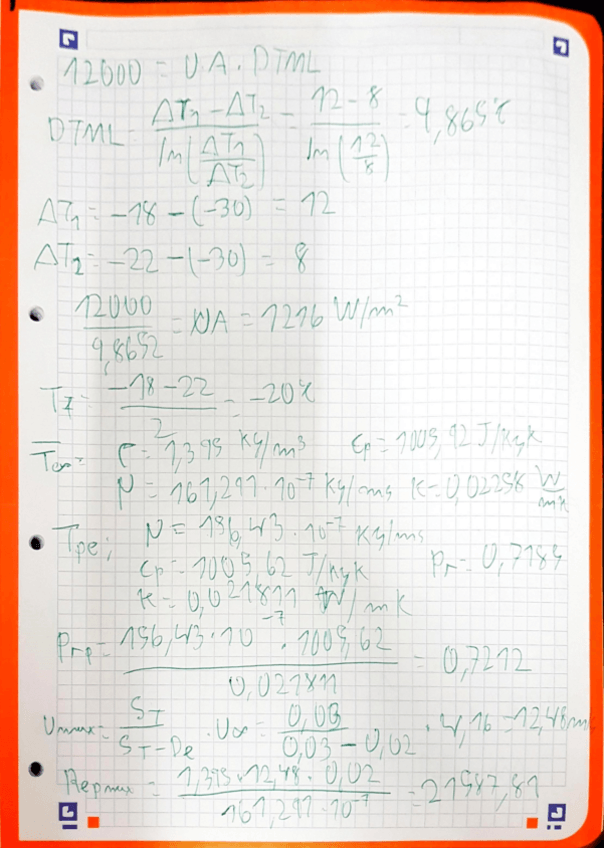 12000 = U.A. DTML
DTML = (ΔT₁ - ΔT₂) / ln(ΔT₁/ΔT₂) = (12-8) / ln(12/8) = 9,865℃
ΔT₁ = -18-(-30) = 12
ΔT₂ = -22-(-30) = 8
12000 / 9,8652 = UA = 1216 W/m²
T_f = (-18-22) / 2 = -20℃
T∞= ρ = 1,395 kg/m³ Cp = 1005,92 J/kgK
μ = 161,291·10⁻⁷ kg/ms K = 0,02258 W/mK
Tpe; μ = 156,43·10⁻⁷ kg/ms
Cp = 1005,62 J/kgK Pr = 0,7185
K = 0,021811 W/mK
Prp = (156,43·10⁻⁷ · 1005,62) / 0,021811 = 0,7212
Umax = S_T / (S_T - De) · U∞ = 0,03 / (0,03-0,02) · 4,16 = 12,48 m/s
Repmax = (1,395·12,48·0,02) / (161,291·10⁻⁷) = 21587,81